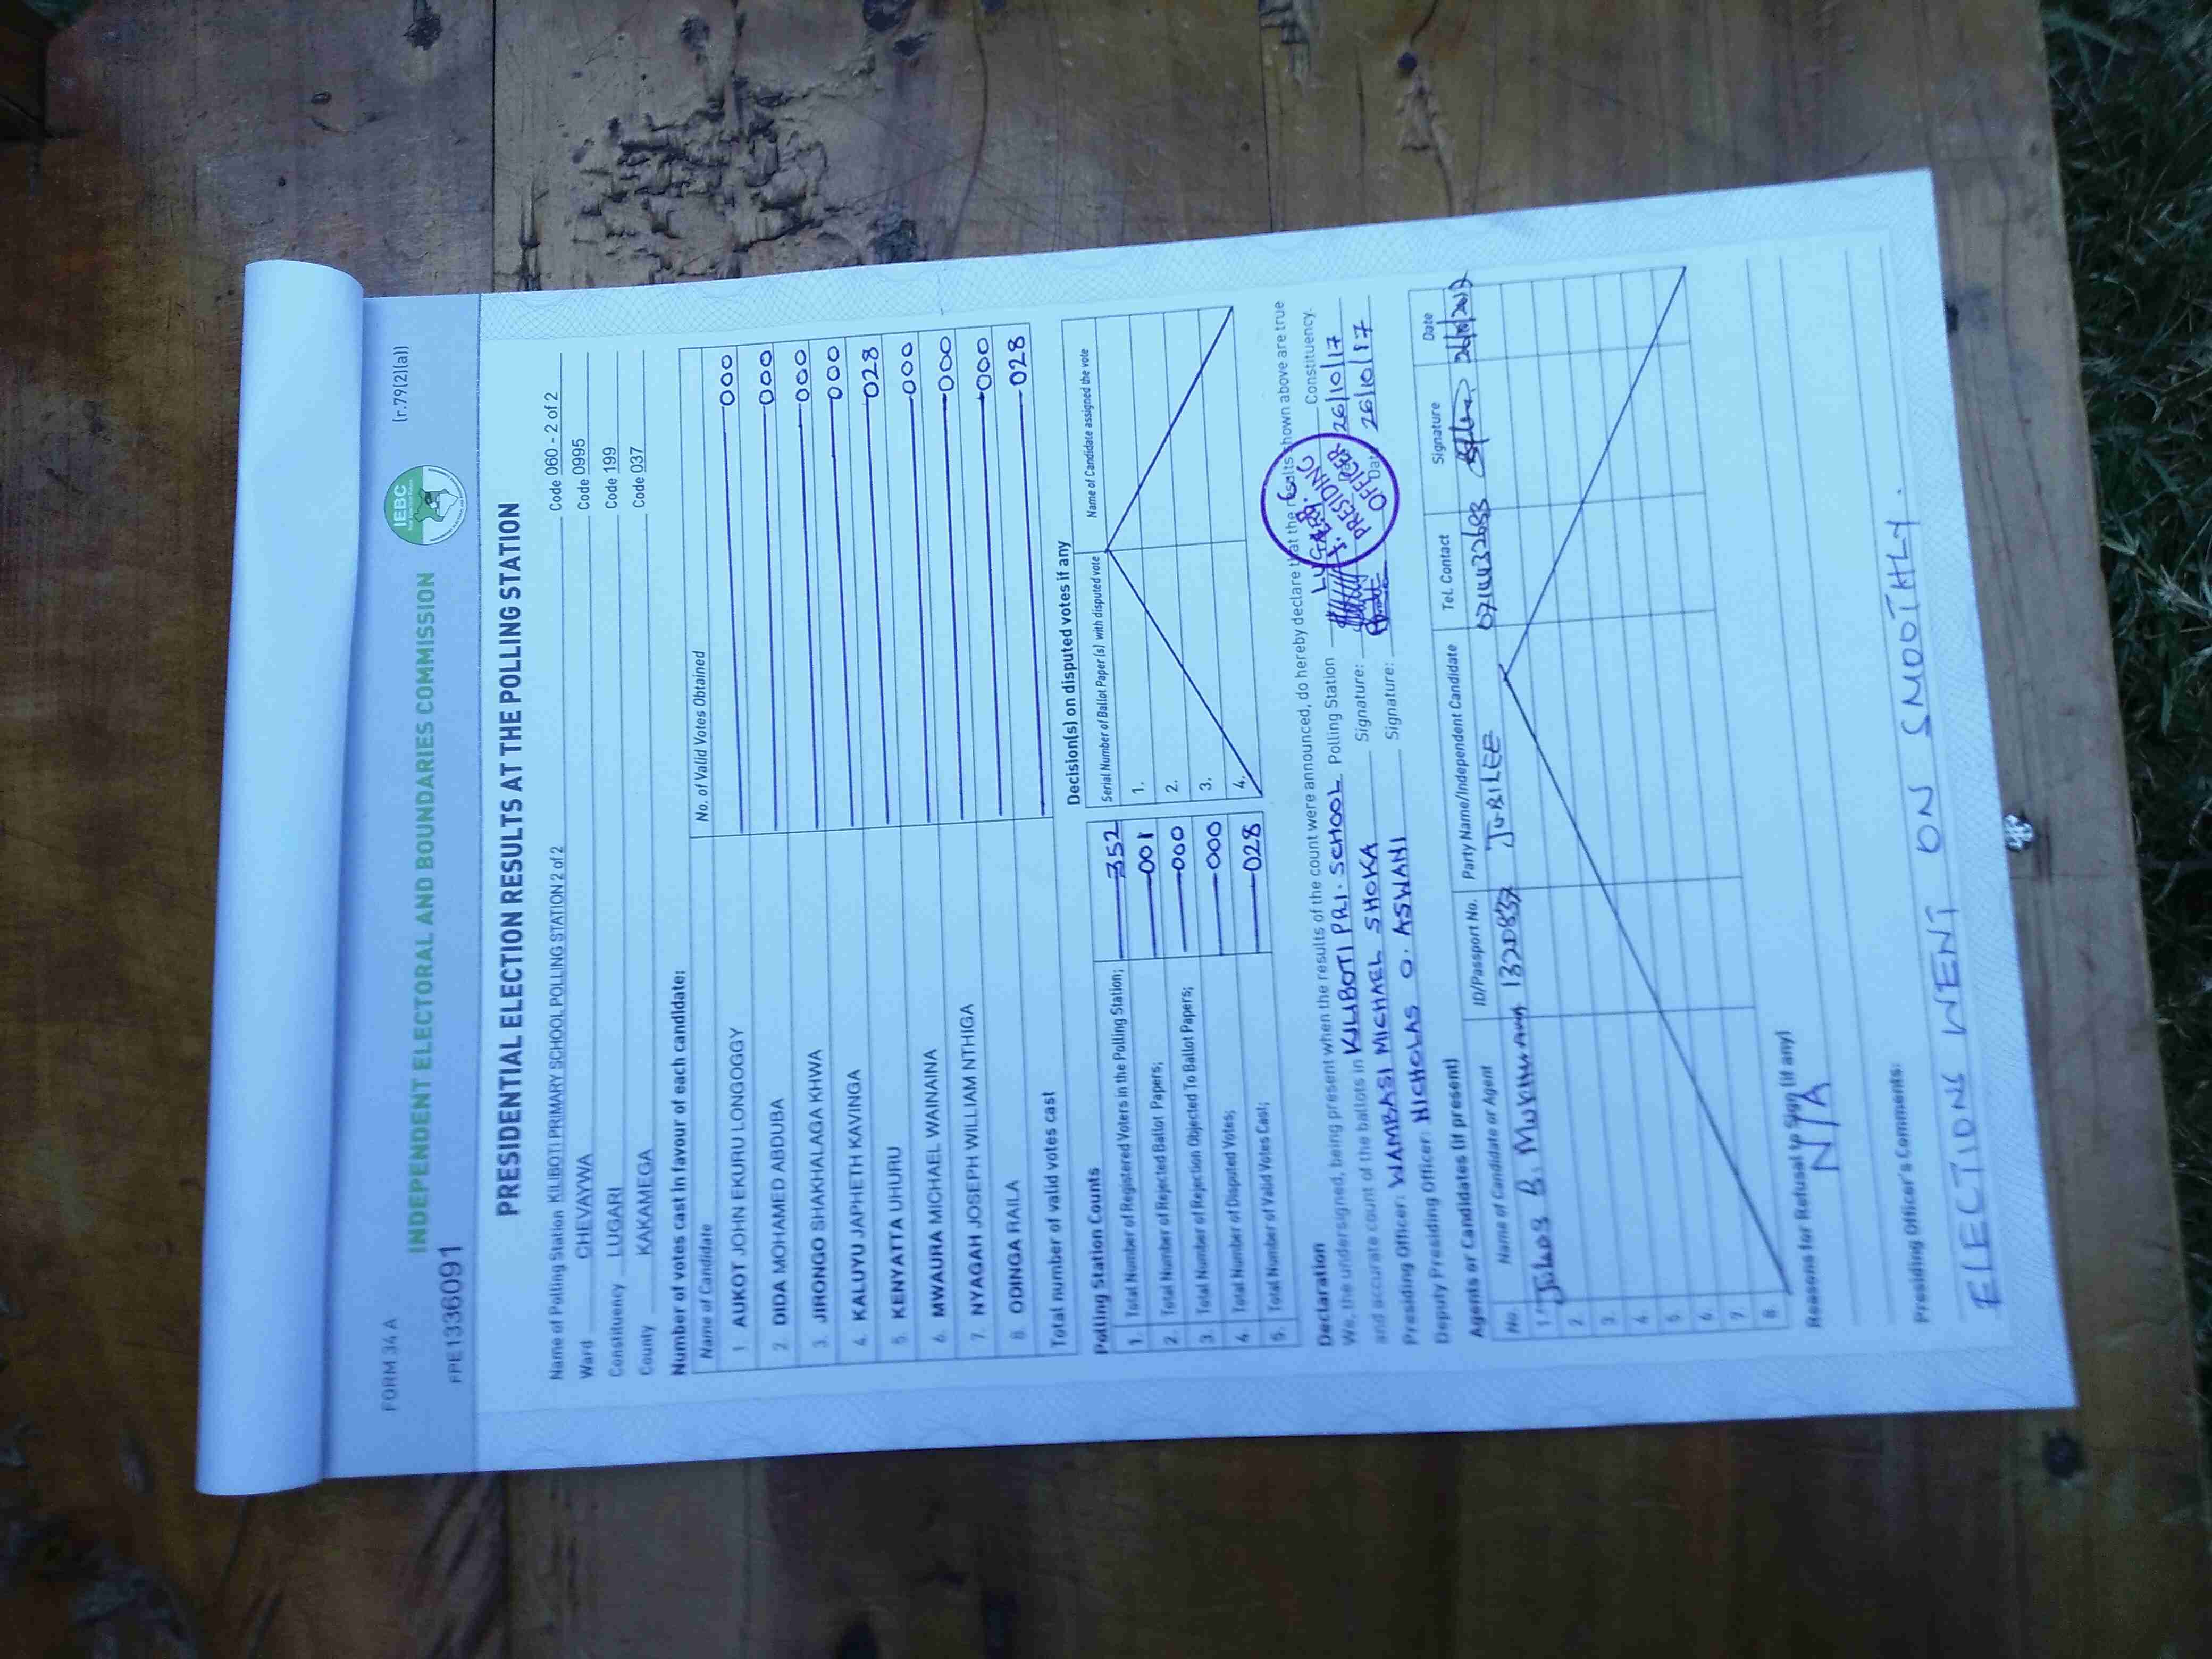 FORM 34 A
(r.79(2)(a))
INDEPENDENT ELECTORAL AND BOUNDARIES COMMISSION
IEBC
PRE1336091
PRESIDENTIAL ELECTION RESULTS AT THE POLLING STATION
Name of Polling Station KILIBOTI PRIMARY SCHOOL POLLING STATION 2 of 2 Code 060 - 2 of 2
Ward CHEVAYWA Code 0995
Constituency LUGARI Code 199
County KAKAMEGA Code 037
Number of votes cast in favour of each candidate:
Name of Candidate No. of Valid Votes Obtained
1 AUKOT JOHN EKURU LONGOGGY 000
2. DIDA MOHAMED ABDUBA 000
3. JIRONGO SHAKHALAGA KHWA 000
4. KALUYU JAPHETH KAVINGA 000
5. KENYATTA UHURU 028
6. MWAURA MICHAEL WAINAINA 000
7. NYAGAH JOSEPH WILLIAM NTHIGA 000
8. ODINGA RAILA 000
Total number of valid votes cast 028
Polling Station Counts
1. Total Number of Registered Voters in the Polling Station; 352
2. Total Number of Rejected Ballot Papers; 001
3. Total Number of Rejection Objected To Ballot Papers; 000
4. Total Number of Disputed Votes; 000
5. Total Number of Valid Votes Cast; 028
Decision(s) on disputed votes if any
Serial Number of Ballot Paper (s) with disputed vote Name of Candidate assigned the vote
1.
2.
3.
4.
Declaration
We, the undersigned, being present when the results of the count were announced, do hereby declare that the results shown above are true
and accurate count of the ballots in KILIBOTI PRI. SCHOOL Polling Station LUGARI Constituency.
Presiding Officer: WAMBASI MICHAEL SHOKA Signature: 26/10/17
Deputy Presiding Officer: NICHOLAS O. ASWANI Signature: Date 26/10/17
PRESIDING OFFICER
Agents or Candidates (if present)
No. Name of Candidate or Agent ID/Passport No. Party Name/Independent Candidate Tel. Contact Signature Date
1. B. JUBILEE 26/10/2017
2.
3.
4.
5.
6.
7.
8.
Reasons for Refusal to Sign (if any)
N/A
Presiding Officer's Comments:
ELECTION WENT ON SMOOTHLY.